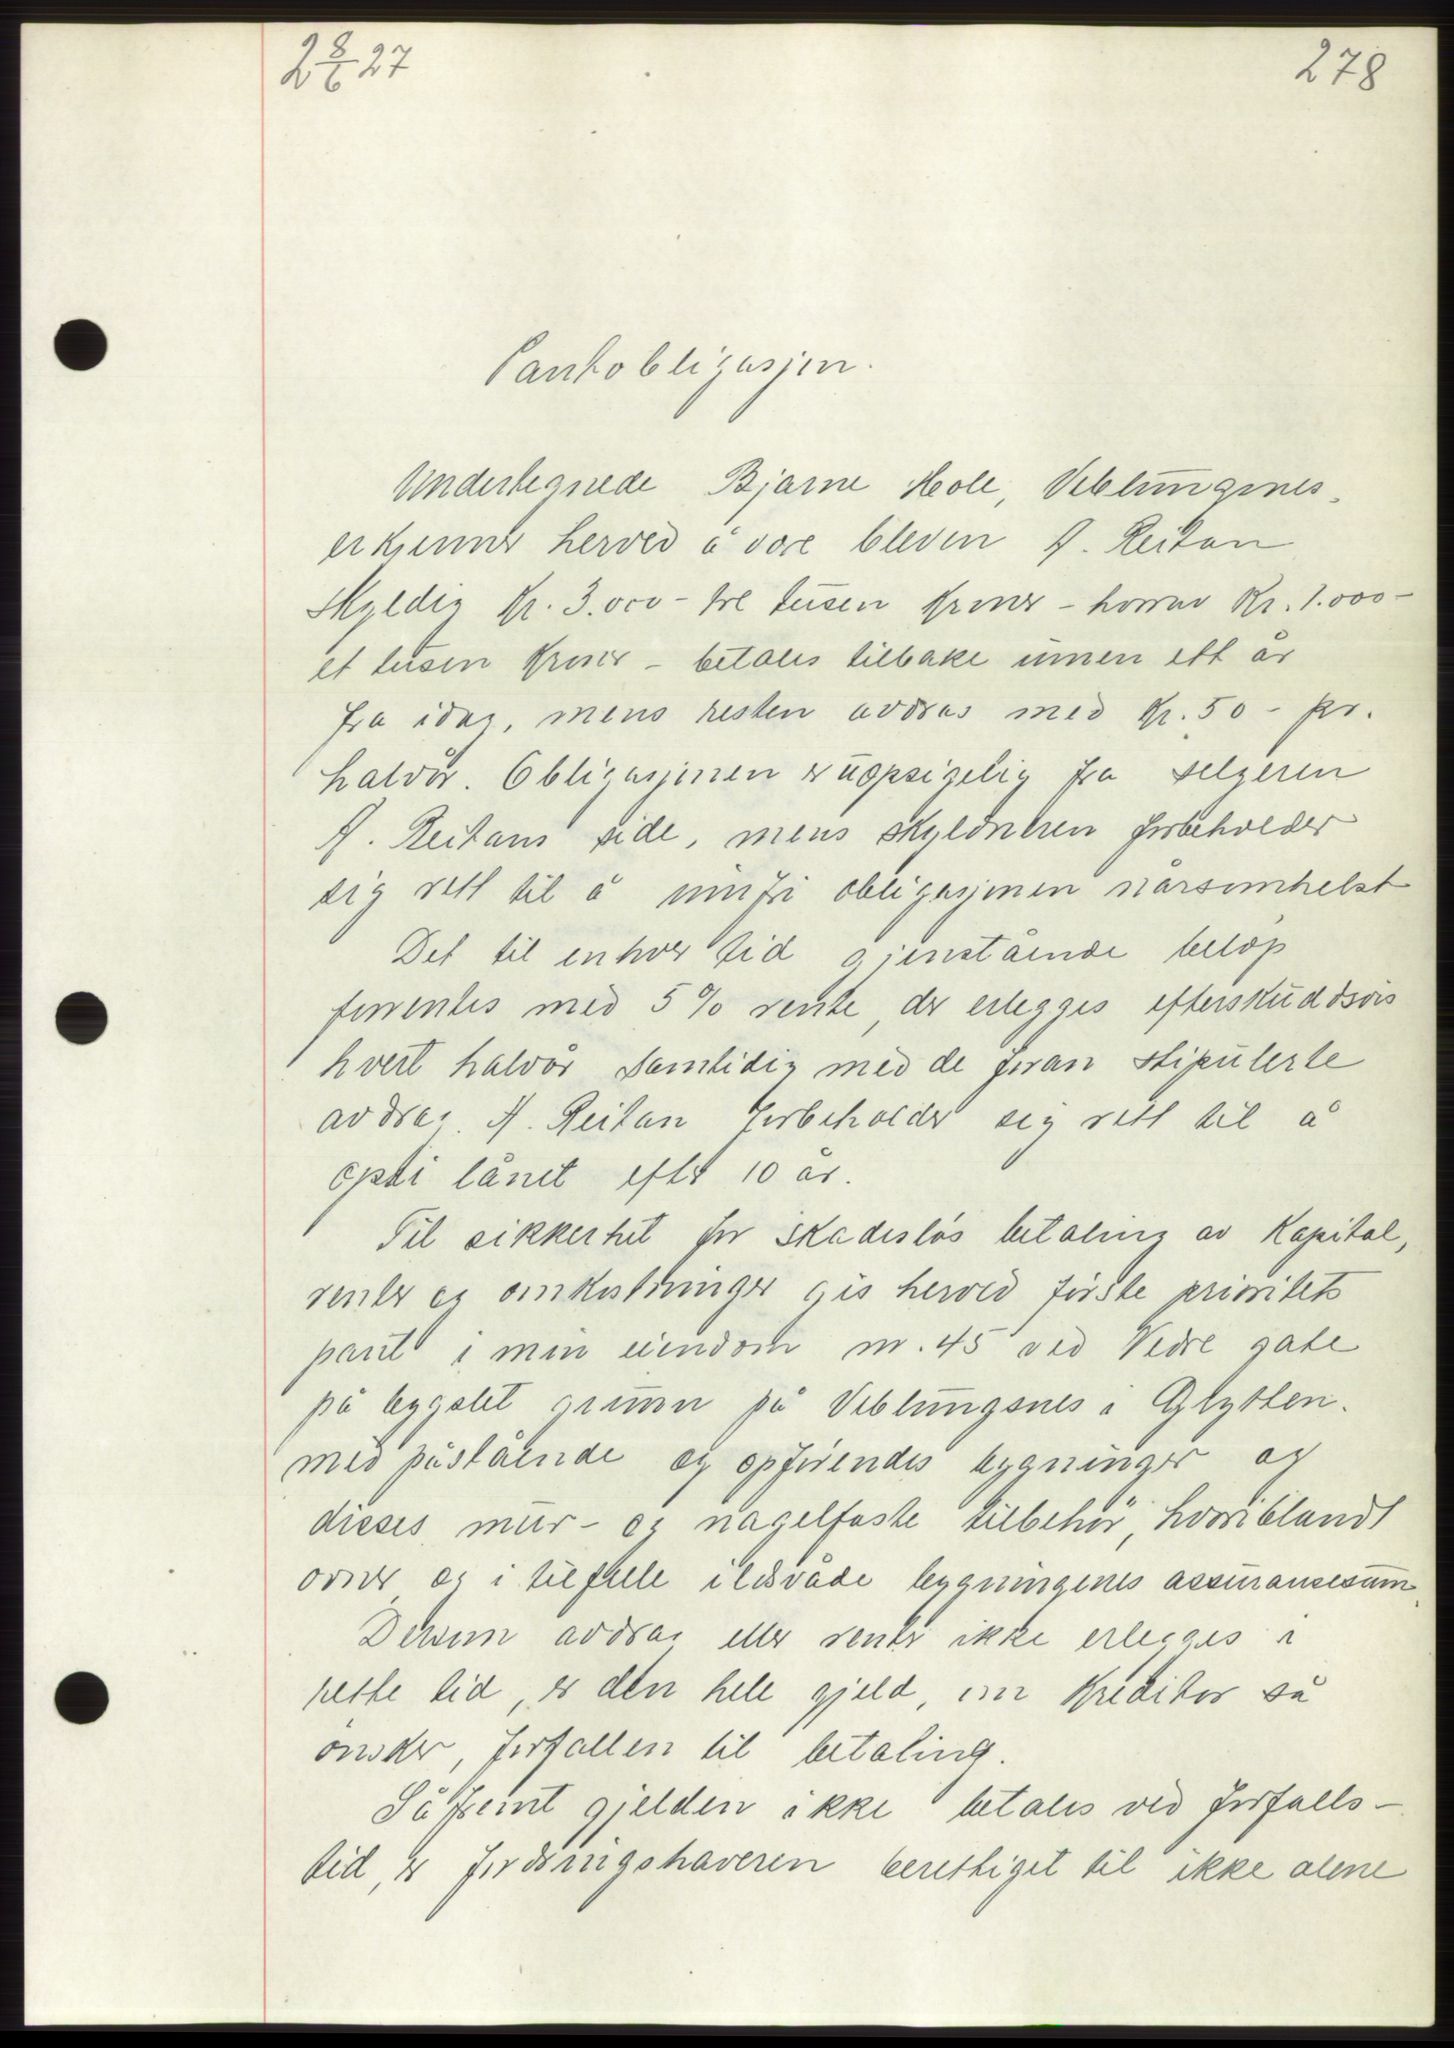 2 8/6 27
278
Pantobligasjon.
Undertegnede Bjarne Hole, Veblungsnes,
erkjenner herved å være bleven A. Reitan
skyldig Kr. 3.000 - tre tusen kroner - hvorav Kr. 1.000 -
et tusen kroner - betales tilbake innen ett år
fra idag, mens resten avdras med Kr. 50 - pr.
halvår. Obligasjonen er uopsigelig fra selgeren
A. Reitans side, mens skyldneren forbeholder
sig rett til å innfri obligasjonen nårsomhelst
Det til enhver tid gjenstående beløp
forrentes med 5 % rente, der erlegges efterskuddsvis
hvert halvår samtidig med de foran stipulerte
avdrag. A. Reitan forbeholder sig rett til å
opsi lånet efter 10 år.
Til sikkerhet for skadesløs betaling av Kapital,
renter og omkostninger gis herved første prioritets
pant i min eiendom nr. 45 ved Nedre gate
på bygslet grunn på Veblungsnes i Grytten.
med påstående og opførendes bygninger og
disses mur- og nagelfaste tilbehør, hvoriblandt
ovner, og i tilfelle ildsvåde bygningenes assuransesum.
Dersom avdrag eller renter ikke erlegges i
rette tid, er den hele gjeld, om Kreditor så
ønsker, forfallen til betaling.
Såfremt gjelden ikke betales ved forfalls-
tid, er fordringshaveren berettiget til ikke alene